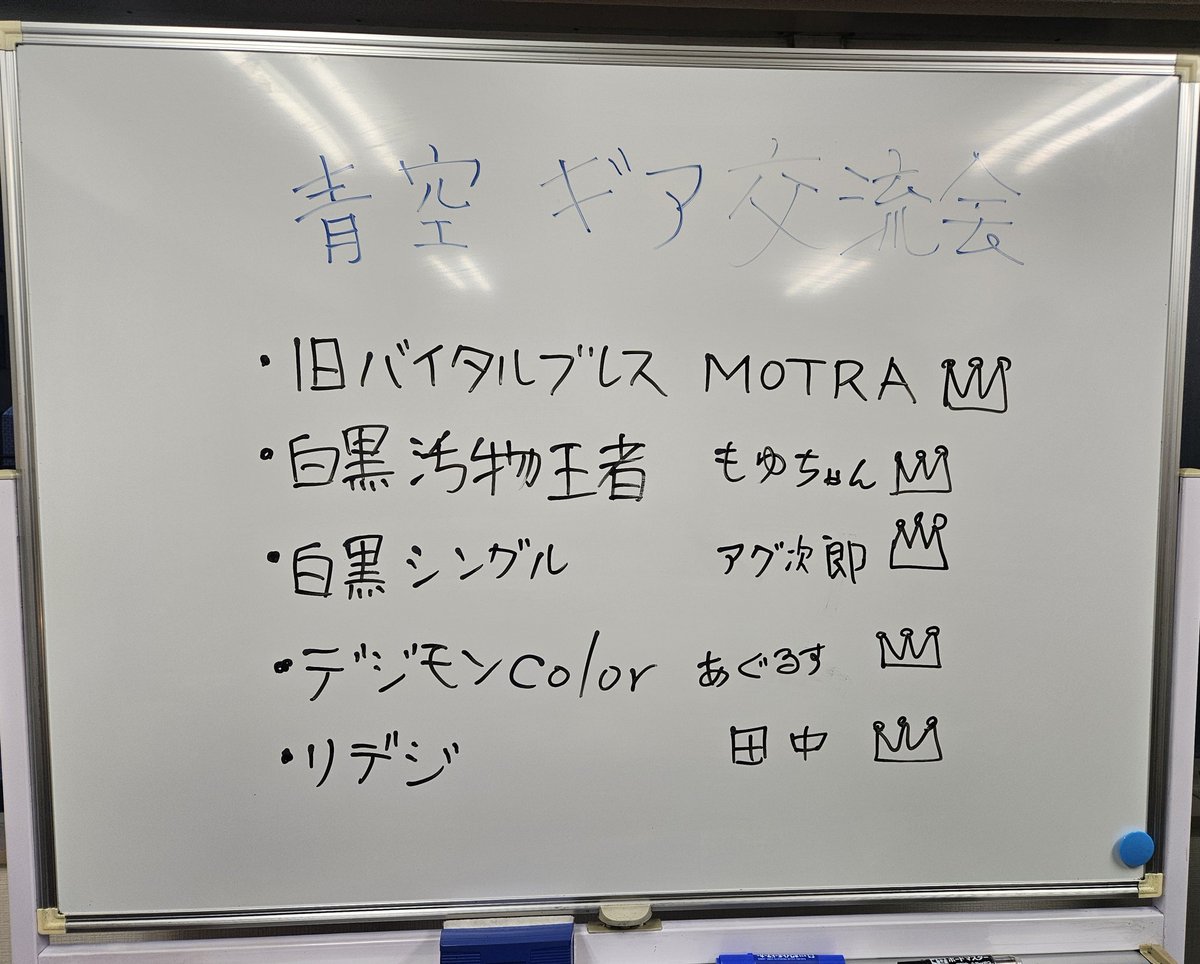 青空 ギア交流会
・旧バイタルブレス MOTRA
・白黒汚物王者 もゆちゃん
・白黒シングル アグ次郎
・デジモンcolor あぐるす
・リデジ 田中